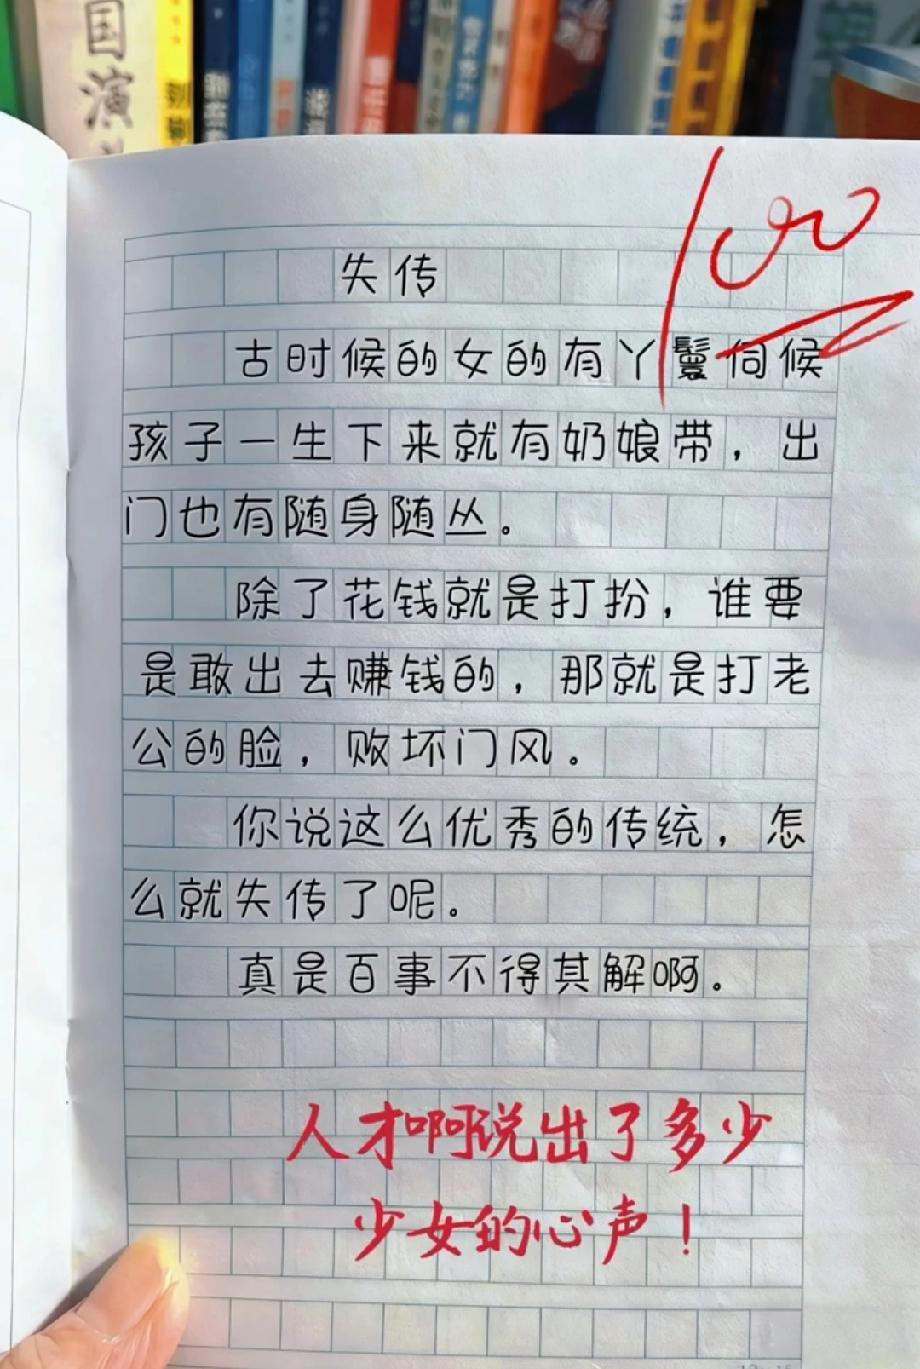 国演
100
失传
古时候的女的有丫鬟伺候
孩子一生下来就有奶娘带，出
门也有随身随丛。
除了花钱就是打扮，谁要
是敢出去赚钱的，那就是打老
公的脸，败坏门风。
你说这么优秀的传统，怎
么就失传了呢。
真是百事不得其解啊。
人才啊说出了多少
少女的心声！